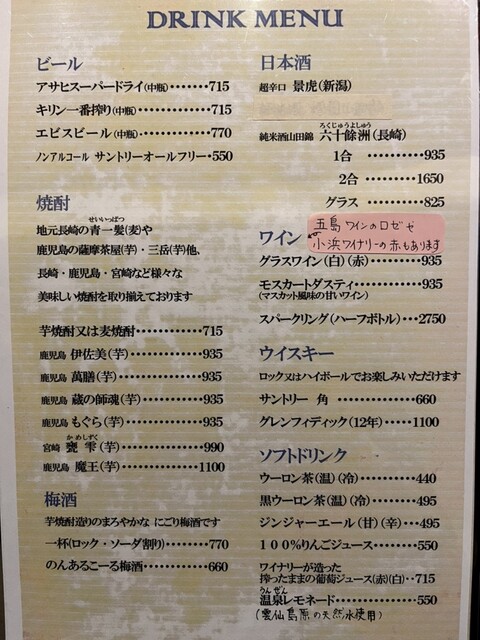 DRINK MENU
ビール
アサヒスーパードライ(中瓶)・・・・・・・・715
キリン一番搾り(中瓶)・・・・・・・・・・715
エビスビール(中瓶)・・・・・・・・・・770
ノンアルコール サントリーオールフリー・550
焼酎
せいいっぱつ
地元長崎の青一髪(麦)や
鹿児島の薩摩茶屋(芋)・三岳(芋)他、
長崎・鹿児島・宮崎など様々な
美味しい焼酎を取り揃えております
芋焼酎又は麦焼酎・・・・・・・・・・715
鹿児島 伊佐美(芋)・・・・・・・・・・935
鹿児島 萬膳(芋)・・・・・・・・・・935
鹿児島 蔵の師魂(芋)・・・・・・・・935
鹿児島 もぐら(芋)・・・・・・・・・・935
かめしずく
宮崎 甕 雫(芋)・・・・・・・・・・990
鹿児島 魔王(芋)・・・・・・・・・・1100
梅酒
芋焼酎造りのまろやかな にごり梅酒です
一杯(ロック・ソーダ割り)・・・・・・770
のんあるこーる梅酒・・・・・・・・660
日本酒
超辛口 景虎(新潟)
ろくじゅうよしゅう
純米酒山田錦 六十餘洲(長崎)
1合 ・・・・・・・・・・935
2合 ・・・・・・・・・・1650
グラス ・・・・・・・・825
ワイン
五島ワインのロゼや
小浜ワイナリーの赤もあります
グラスワイン(白)(赤)・・・・・・・・935
モスカートダスティ・・・・・・・・935
(マスカット風味の甘いワイン)
スパークリング(ハーフボトル)・・・2750
ウイスキー
ロック又はハイボールでお楽しみいただけます
サントリー 角 ・・・・・・・・・・660
グレンフィディック(12年)・・・・・1100
ソフトドリンク
ウーロン茶(温)(冷)・・・・・・・・440
黒ウーロン茶(温)(冷)・・・・・・495
ジンジャーエール(甘)(辛)・・・495
100%りんごジュース・・・・・・・・550
ワイナリーが造った
搾ったままの葡萄ジュース(赤)(白)・・715
うんぜん
温泉レモネード・・・・・・・・・・550
(雲仙島原の天然水使用)